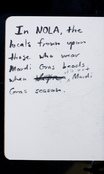 In NOLA, the
locals frown upon
those who wear
Mardi Gras beads
when Mardi
Gras season.